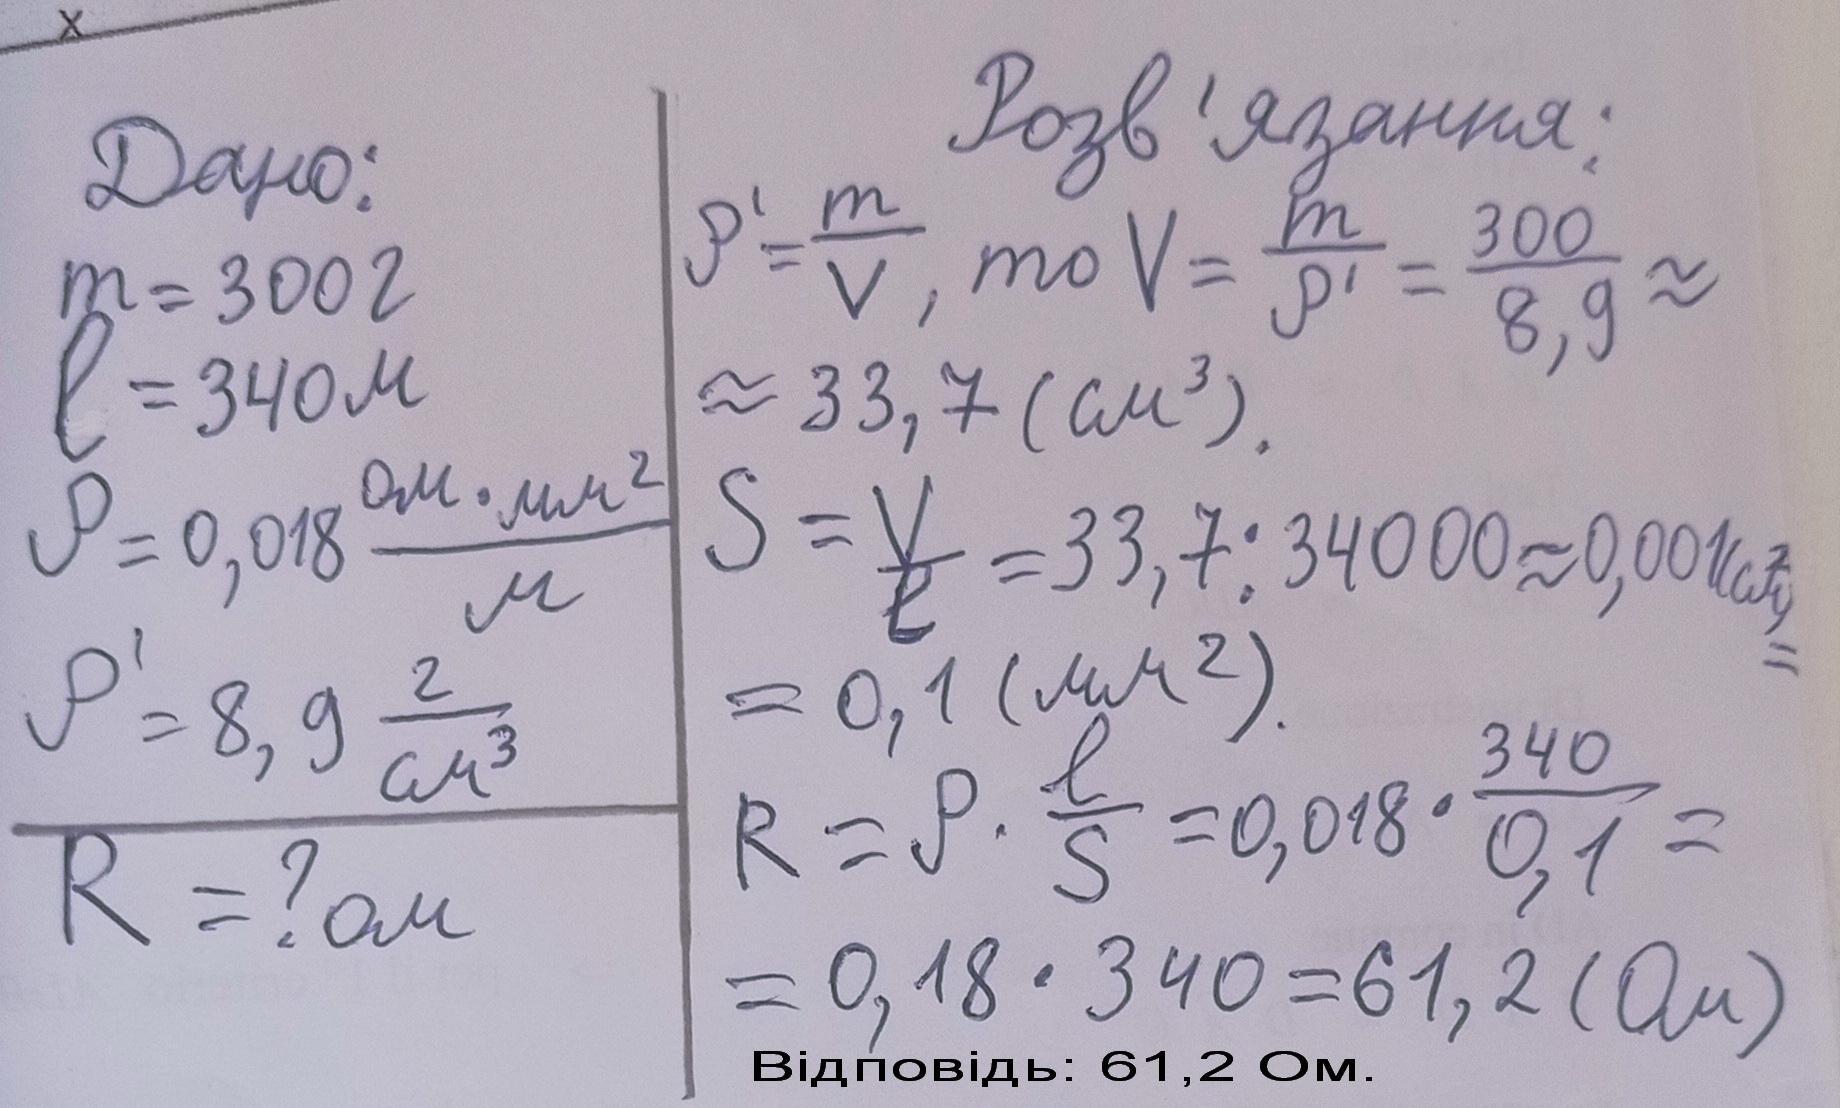 x
Дано:
m = 300 г
l = 340 м
ρ = 0,018 Ом · мм² / м
ρ' = 8,9 г / см³
R = ? Ом
Розв'язання:
ρ' = m / V, то V = m / ρ' = 300 / 8,9 ≈
≈ 33,7 (см³).
S = V / l = 33,7 : 34000 ≈ 0,001 (см²) =
= 0,1 (мм²).
R = ρ · l / S = 0,018 · 340 / 0,1 =
= 0,18 · 340 = 61,2 (Ом)
Відповідь: 61,2 Ом.